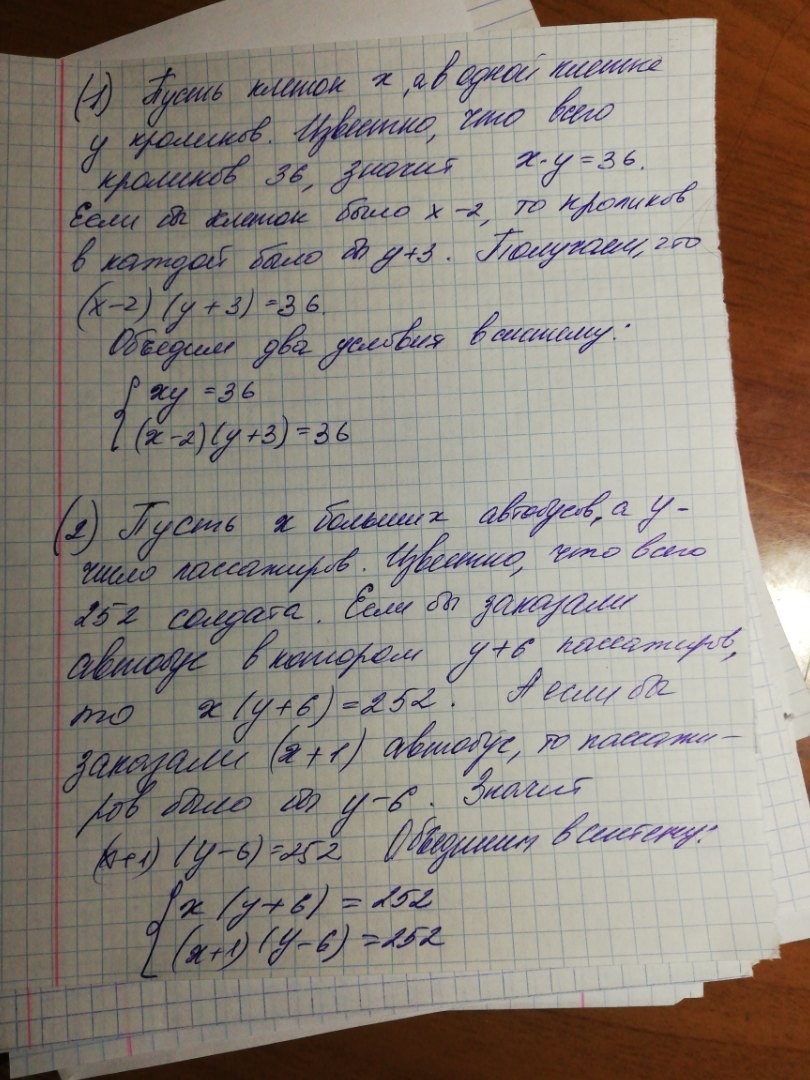 (1) Пусть клеток x, а в одной клетке
y кроликов. Известно, что всего
кроликов 36, значит x·y=36.
Если бы клеток было x-2, то кроликов
в каждой было бы y+3. Получаем, что
(x-2)(y+3)=36.
Объедим два условия в систему:
{xy=36
(x-2)(y+3)=36
(2) Пусть x больших автобусов, а y-
число пассажиров. Известно, что всего
252 солдата. Если бы заказали
автобус в котором y+6 пассажиров,
то x(y+6)=252. А если бы
заказали (x+1) автобус, то пассажи-
ров было бы y-6. Значит
(x+1)(y-6)=252 Объединим в систему:
{x(y+6)=252
(x+1)(y-6)=252